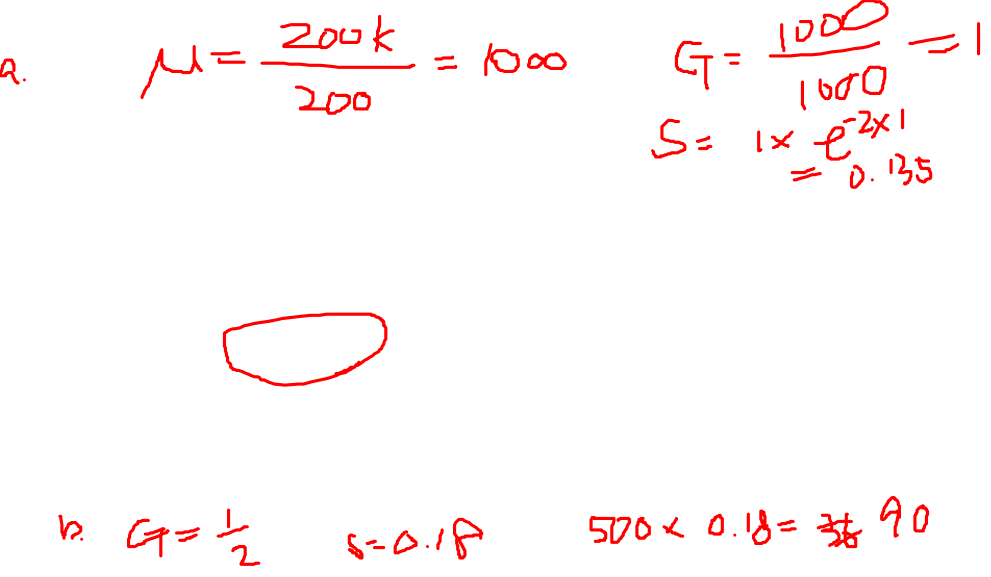 a. μ = 200k / 200 = 1000 G = 1000 / 1000 = 1
S = 1 × e^-2×1
= 0.135
b. G = 1/2 S = 0.18 500 × 0.18 = 90